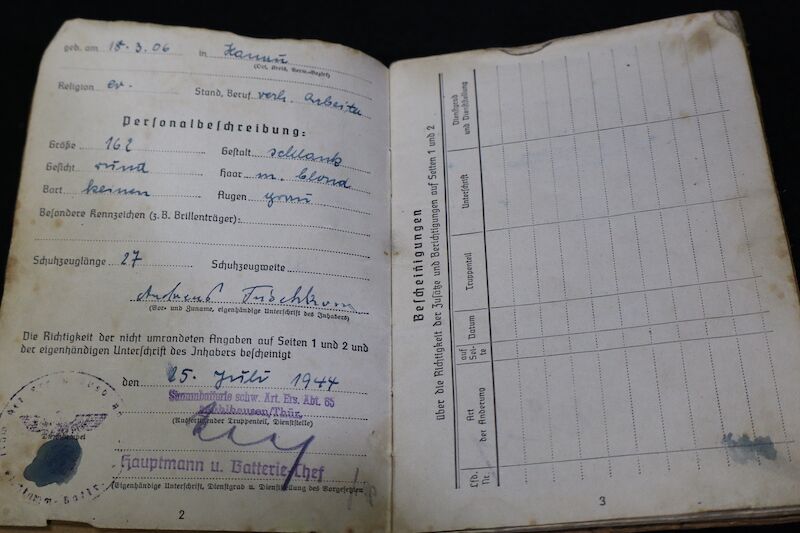 geb. am 18.3.06 in Hanau
(Ort, Kreis, Verw.-Bezirk)
Religion ev. Stand, Beruf verh. Arbeiter
Personalbeschreibung:
Größe 162 Gestalt schlank
Gesicht rund Haar m. blond
Bart keinen Augen grau
Besondere Kennzeichen (z. B. Brillenträger):
Schuhzeuglänge 27 Schuhzeugweite
Andreas
(Vor- und Zuname, eigenhändige Unterschrift des Inhabers)
Die Richtigkeit der nicht umrandeten Angaben auf Seiten 1 und 2 und
der eigenhändigen Unterschrift des Inhabers bescheinigt
den 25. Juli 1944
Stammbatterie schw. Art. Ers. Abt. 65
Mühlhausen/Thür.
(Ausfertigender Truppenteil, Dienststelle)
Hauptmann u. Batterie-Chef
(Eigenhändige Unterschrift, Dienstgrad u. Dienststellung des Vorgesetzten)
2
Bescheinigungen
über die Richtigkeit der Zusätze und Berichtigungen auf Seiten 1 und 2
Lfd. Nr.
Art der Änderung
auf Sei- te
Datum
Truppenteil
Unterschrift
Dienstgrad und Dienststellung
3